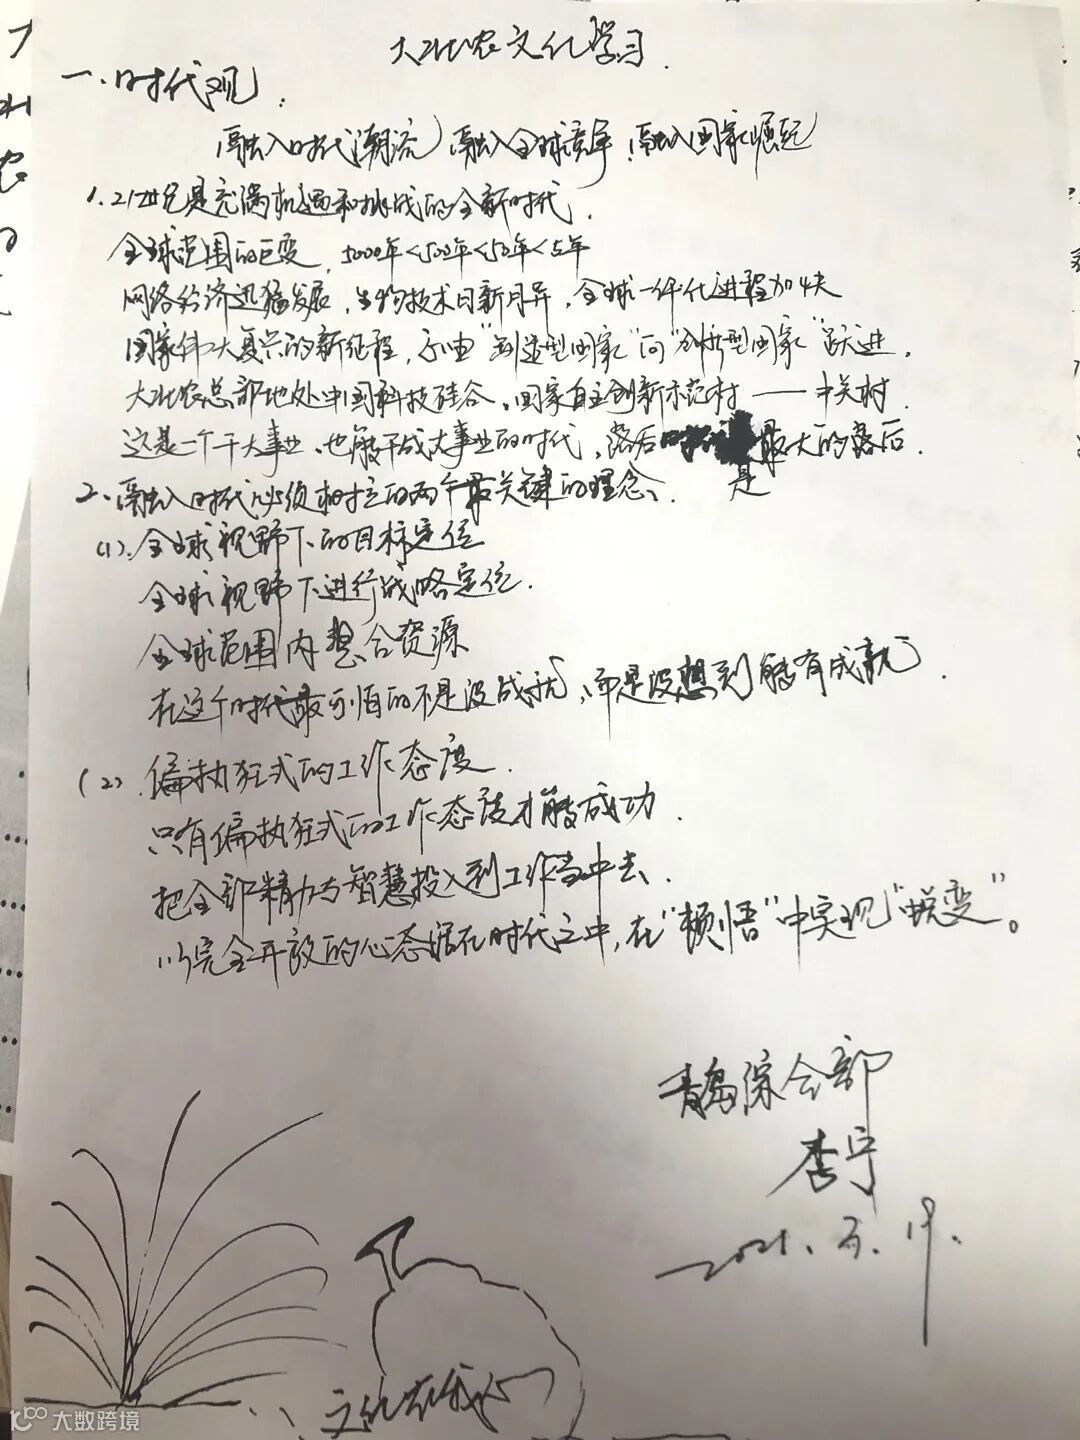 大北农文化学习.
一、时代观：
融入时代潮流，融入全球竞争，融入国家崛起
1、21世纪是充满机遇和挑战的全新时代.
全球范围的巨变，5000年<500年<50年<5年
网络经济迅猛发展，生物技术日新月异，全球一体化进程加快
国家伟大复兴的新征程，正由“制造型国家”向“创新型国家”跃进.
大北农总部地处中国科技硅谷、国家自主创新示范村——中关村.
这是一个干大事业、也能干成大事业的时代，落后是最大的落后.
2、融入时代必须树立的两个最关键的理念、
(1).全球视野下的目标定位
全球视野下进行战略定位.
全球范围内整合资源
在这个时代最可怕的不是没成就，而是没想到能有成就.
(2).偏执狂式的工作态度.
只有偏执狂式的工作态度才能成功.
把全部精力与智慧投入到工作当中去.
以完全开放的心态活在时代之中，在“顿悟”中实现“蜕变”。
青岛综合部
李宁
2021.3.19.
文化在我心
大数跨境